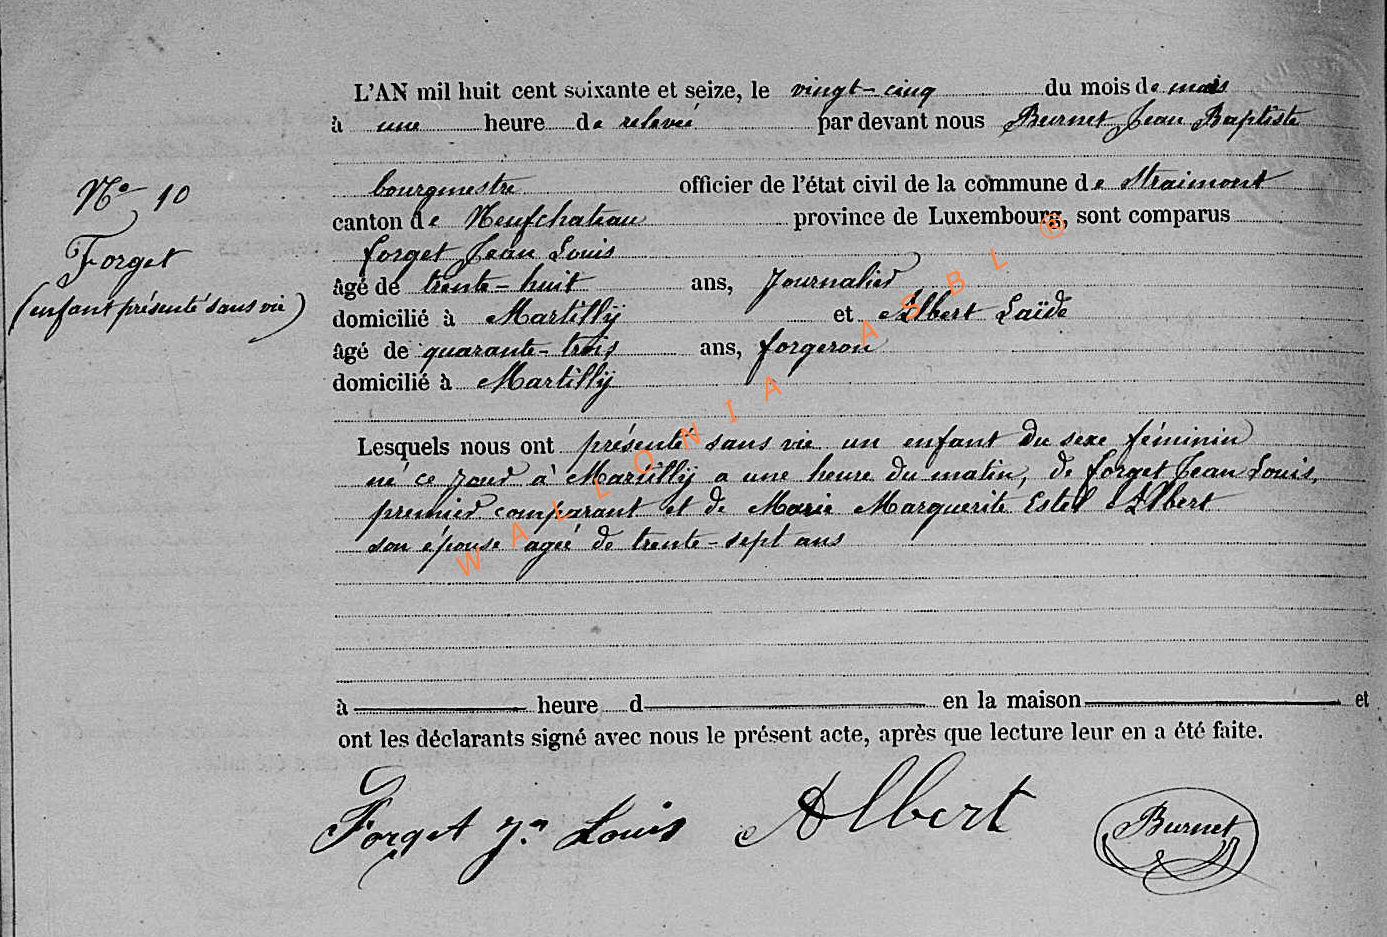 L'AN mil huit cent soixante et seize, le vingt-cinq du mois de mars
à une heure de relevée par devant nous Burnet Jean Baptiste
bourgmestre officier de l'état civil de la commune de Straimont
canton de Neufchateau province de Luxembourg, sont comparus
forget Jean Louis
âgé de trente-huit ans, Journalier
domicilié à Martilly et Albert Laïde
âgé de quarante-trois ans, forgeron
domicilié à Martilly
Lesquels nous ont présenté sans vie un enfant du sexe féminin
né ce jour à Martilly a une heure du matin, de forget Jean Louis,
premier comparant et de Marie Marguerite Estel Albert
son épouse agée de trente-sept ans
à heure d en la maison et
ont les déclarants signé avec nous le présent acte, après que lecture leur en a été faite.
Forget Jn Louis Albert Burnet
No 10
Forget
(enfant présenté sans vie)
WALLONIA ASBL ®